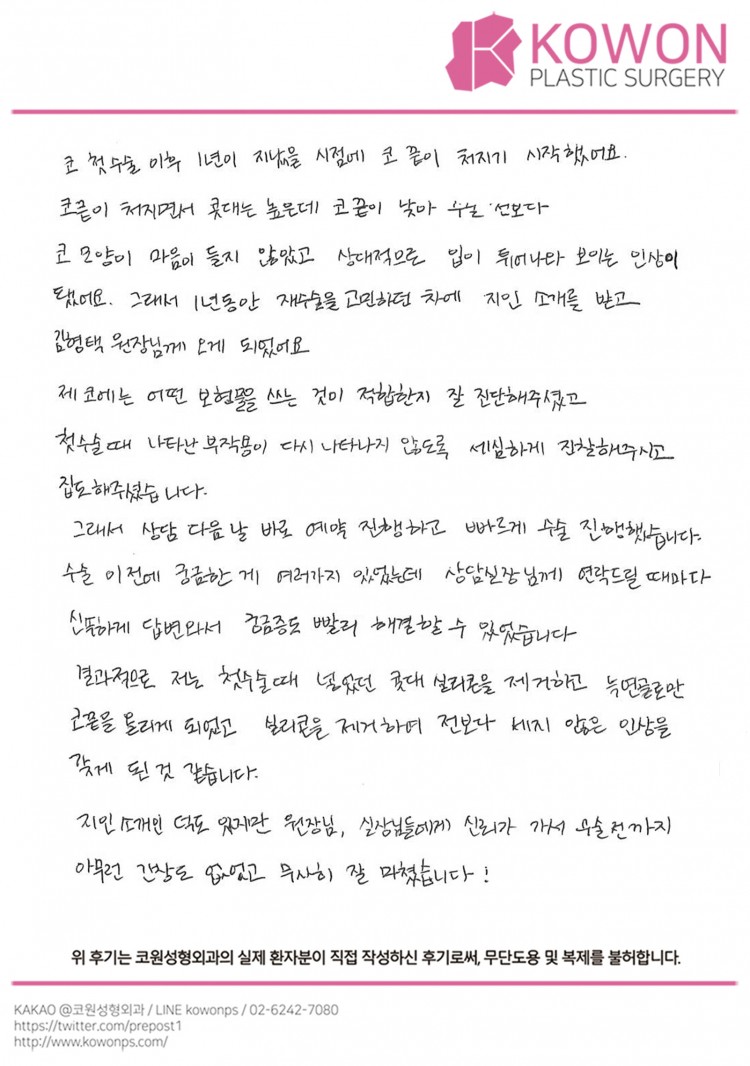 KOWON
PLASTIC SURGERY
코 첫수술 이후 1년이 지났을 시점에 코 끝이 처지기 시작했어요.
코끝이 처지면서 콧대는 높은데 코끝이 낮아 수술 전보다
코 모양이 마음이 들지 않았고 상대적으로 입이 튀어나와 보이는 인상이
됐어요. 그래서 1년동안 재수술을 고민하던 차에 지인 소개를 받고
김형택 원장님께 오게 되었어요
제 코에는 어떤 보형물을 쓰는 것이 적합한지 잘 진단해주셨고
첫수술때 나타난 부작용이 다시 나타나지 않도록 세심하게 진찰해주시고
집도해주셨습니다.
그래서 상담 다음날 바로 예약 진행하고 빠르게 수술 진행했습니다.
수술 이전에 궁금한 게 여러가지 있었는데 상담실장님께 연락드릴 때마다
신속하게 답변와서 궁금증도 빨리 해결할 수 있었습니다
결과적으로 저는 첫수술때 넣었던 콧대 실리콘을 제거하고 늑연골로만
코끝을 올리게 되었고 실리콘을 제거하여 전보다 세지 않은 인상을
갖게 된 것 같습니다.
지인소개인 덕도 있지만 원장님, 실장님들에게 신뢰가 가서 수술전까지
아무런 긴장도 없었고 무사히 잘 마쳤습니다!
위 후기는 코원성형외과의 실제 환자분이 직접 작성하신 후기로써, 무단도용 및 복제를 불허합니다.
KAKAO @코원성형외과 / LINE kowonps / 02-6242-7080
https://twitter.com/prepost1
http://www.kowonps.com/